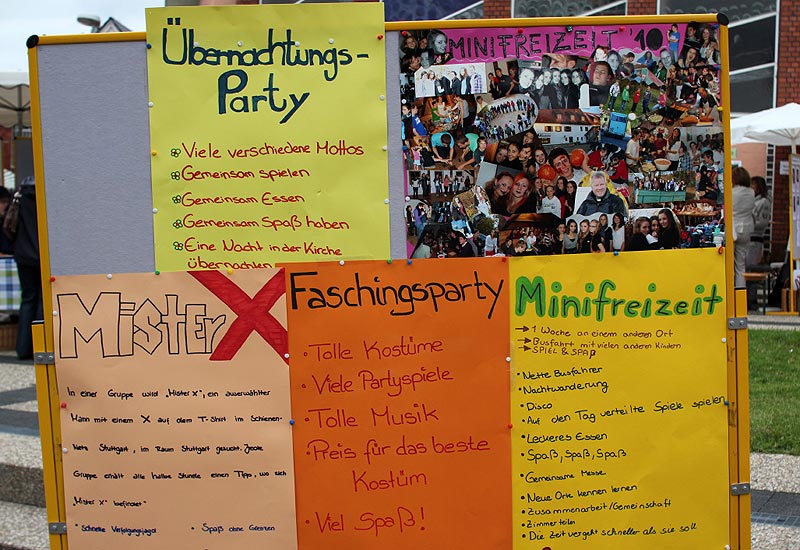 Übernachtungs-
Party
Viele verschiedene Mottos
Gemeinsam spielen
Gemeinsam Essen
Gemeinsam Spaß haben
Eine Nacht in der Kirche
übernachten
MINIFREIZEIT '10
Mister X
In einer Gruppe wird „Mister X“, ein auserwählter
Mann mit einem X auf dem T-Shirt im Schienen-
Netz Stuttgart, im Raum Stuttgart gesucht. Jede
Gruppe erhält alle halbe Stunde einen Tipp, wo sich
„Mister X“ befindet
• Schnelle Verfolgungsjagd
• Spaß ohne Grenzen
Faschingsparty
• Tolle Kostüme
• Viele Partyspiele
• Tolle Musik
• Preis für das beste
Kostüm
• Viel Spaß!
Minifreizeit
→ 1 Woche an einem anderen Ort
→ Busfahrt mit vielen anderen Kindern
→ SPIEL & SPAß
• Nette Busfahrer
• Nachtwanderung
• Disco
• Auf den Tag verteilte Spiele spielen
• Leckeres Essen
• Spaß, Spaß, Spaß
• Gemeinsame Messe
• Neue Orte kennen lernen
• Zusammenarbeit/Gemeinschaft
• Zimmer teilen
• Die Zeit vergeht schneller als sie soll